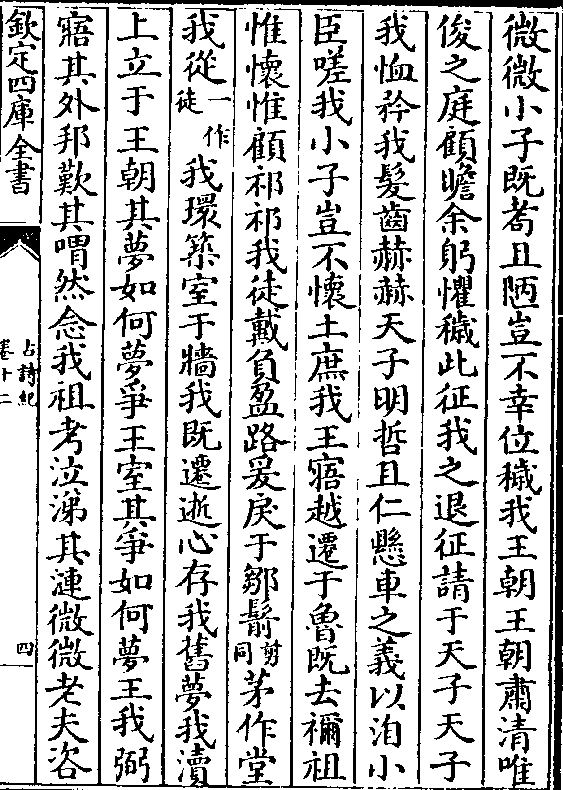 微微小子既耉且陋豈不幸位穢我王朝王朝肅清唯
俊之庭顧瞻余躬懼穢此征我之退征請于天子天子
我恤矜我髮齒赫赫天子明哲且仁懸車之義以洎小
臣嗟我小子豈不懷土庶我王寤越遷于魯既去禰祖
惟懷惟顧祁祁我徒戴負盈路爰戾于鄒鬋剪同茅作堂
我從一作徒我環築室于牆我既遷逝心存我舊夢我瀆
上立于王朝其夢如何夢爭王室其爭如何夢王我弼
寤其外邦歎其喟然念我祖考泣涕其漣微微老夫咨
欽定四庫全書
古詩紀
卷十二
四